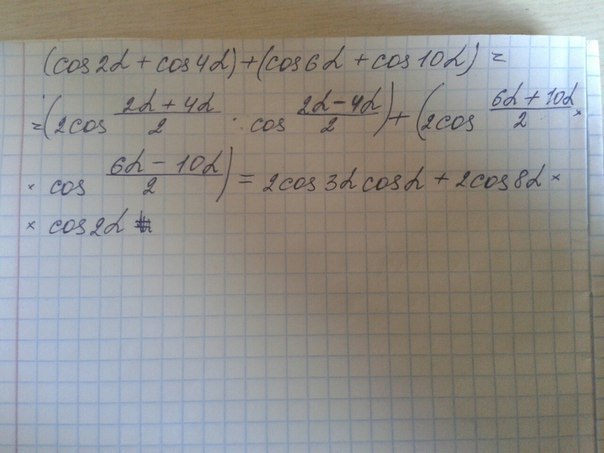 (cos2α + cos4α) + (cos6α + cos10α) =
= (2cos (2α + 4α)/2 · cos (2α − 4α)/2) + (2cos (6α + 10α)/2 ×
× cos (6α − 10α)/2) = 2cos3α cosα + 2cos8α ×
× cos2α